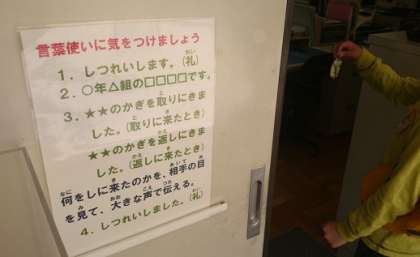 言葉使いに気をつけましょう
1. しつれいします。(礼)
2. ○年△組の□□□□です。
3. ★★のかぎを取りにきま
した。(取りに来たとき)
★★のかぎを返しにきま
した。(返しに来たとき)
何をしに来たのかを、相手の目
を見て、大きな声で伝える。
4. しつれいしました。(礼)